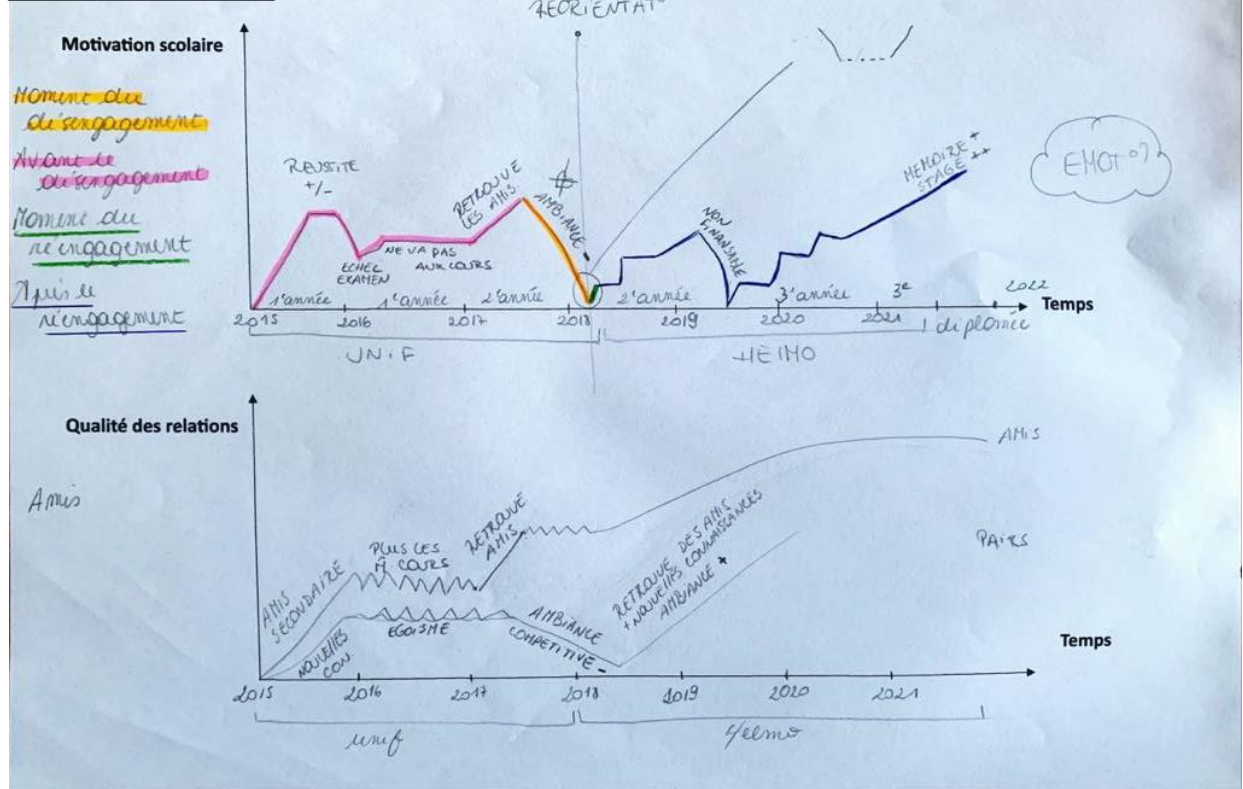 REORIENTAT
Motivation scolaire
Moment du
désengagement
Avant le
désengagement
Moment du
réengagement
Après le
réengagement
REUSSITE
+/-
ECHEC
EXAMEN
NE VA PAS
AUX COURS
RETROUVE
LES AMIS
AMBIANCE -
NON
FINANSABLE
MEMOIRE +
STAGE ++
EMOT°?
1e année
1e année
2e année
2e année
3e année
3e
2022
Temps
2015
2016
2017
2018
2019
2020
2021
diplomée
UNIF
HELMO
Qualité des relations
Amis
AMIS
SECONDAIRE
PLUS LES
COURS
RETROUVE
AMIS
AMIS
NOUVELLES
CON.
EGOISME
AMBIANCE
COMPETITIVE -
RETROUVE DES AMIS
+ NOUVELLES CONNAISSANCES
AMBIANCE +
PAIRS
Temps
2015
2016
2017
2018
2019
2020
2021
unif
Helmo